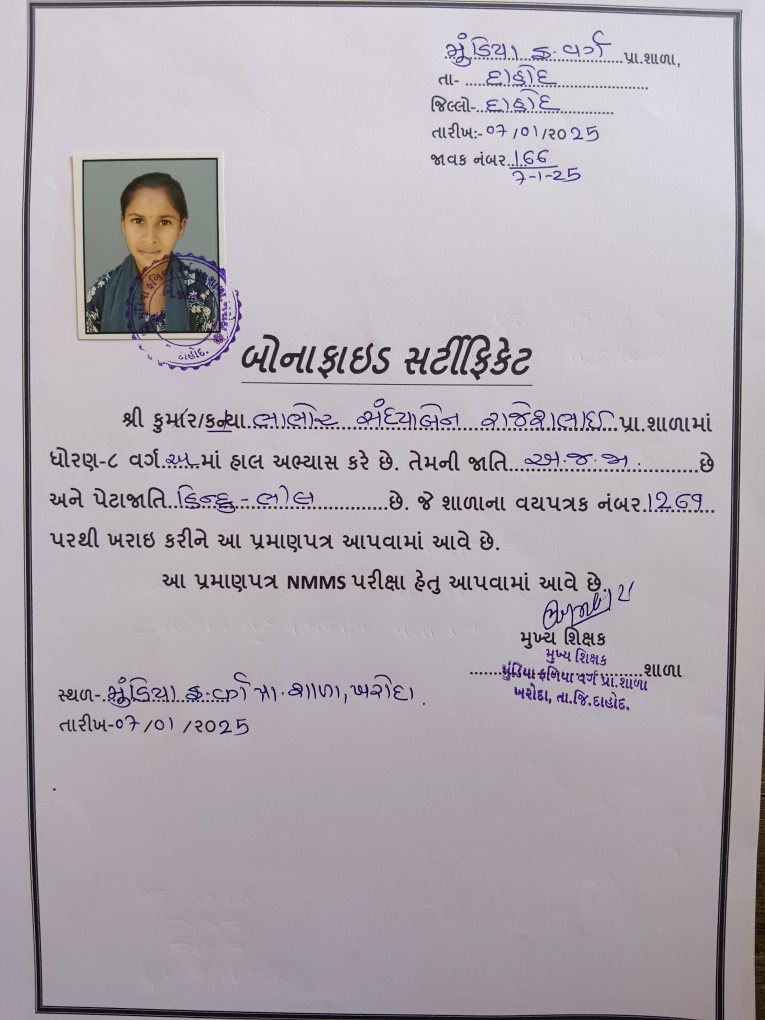 મુંડિયા ફ. વર્ગ પ્રા.શાળા,
તા- દાહોદ
જિલ્લો- દાહોદ
તારીખ:- 07/01/૨૦25
જાવક નંબર 166
7-1-25
દાહોદ.
બોનાફાઇડ સર્ટીફિકેટ
શ્રી કુમાર/કન્યા ભાભોર સંધ્યાબેન રાજેશભાઈ પ્રા.શાળામાં
ધોરણ-૮ વર્ગ અ માં હાલ અભ્યાસ કરે છે. તેમની જાતિ અ.જ.જા. છે
અને પેટાજાતિ હિન્દુ - ભીલ છે. જે શાળાના વયપત્રક નંબર 1269
પરથી ખરાઇ કરીને આ પ્રમાણપત્ર આપવામાં આવે છે.
આ પ્રમાણપત્ર NMMS પરીક્ષા હેતુ આપવામાં આવે છે.
મુખ્ય શિક્ષક
મુખ્ય શિક્ષક
શાળા
મુંડિયા ફળિયા વર્ગ પ્રા.શાળા
ખરોદા, તા.જિ.દાહોદ.
સ્થળ- મુંડિયા ફ. વર્ગ પ્રા. શાળા, ખરોદા.
તારીખ-07/01/૨૦25